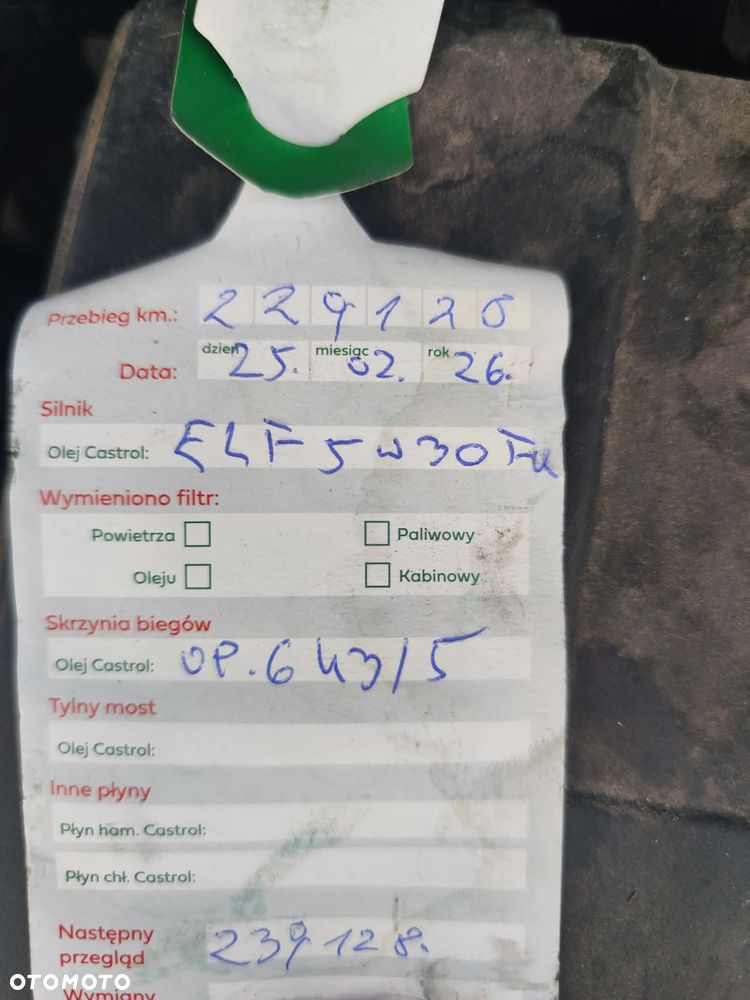 Przebieg km.: 229120
dzień miesiąc rok
Data: 25. 02. 26.
Silnik
Olej Castrol: ELF 5W30
Wymieniono filtr:
Powietrza Paliwowy
Oleju Kabinowy
Skrzynia biegów
Olej Castrol: OP.
Tylny most
Olej Castrol:
Inne płyny
Płyn ham. Castrol:
Płyn chł. Castrol:
Następny
przegląd 239128.
Wymiany
OTOMOTO